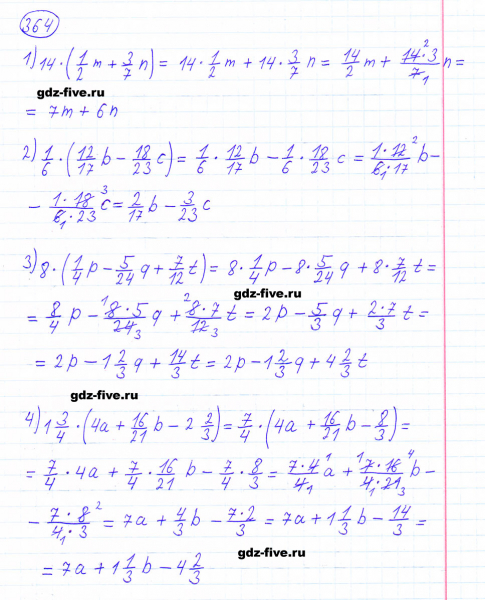 364
1) 14 · (1/2 m + 3/7 n) = 14 · 1/2 m + 14 · 3/7 n = 14/2 m + 14² · 3/7₁ n =
gdz-five.ru
= 7m + 6n
2) 1/6 · (12/17 b − 18/23 c) = 1/6 · 12/17 b − 1/6 · 18/23 c = 1 · 12²/6₁ · 17 b −
− 1 · 18³/6₁ · 23 c = 2/17 b − 3/23 c
3) 8 · (1/4 p − 5/24 q + 7/12 t) = 8 · 1/4 p − 8 · 5/24 q + 8 · 7/12 t =
gdz-five.ru
= 8/4 p − ¹8 · 5/24₃ q + ²8 · 7/12₃ t = 2p − 5/3 q + 2 · 7/3 t =
= 2p − 1 2/3 q + 14/3 t = 2p − 1 2/3 q + 4 2/3 t
gdz-five.ru
4) 1 3/4 · (4a + 16/21 b − 2 2/3) = 7/4 · (4a + 16/21 b − 8/3) =
= 7/4 · 4a + 7/4 · 16/21 b − 7/4 · 8/3 = 7 · 4¹/4₁ a + ¹7 · 16⁴/4₁ · 21₃ b −
− 7 · 8²/4₁ · 3 = 7a + 4/3 b − 7 · 2/3 = 7a + 1 1/3 b − 14/3 =
= 7a + 1 1/3 b − 4 2/3
gdz-five.ru